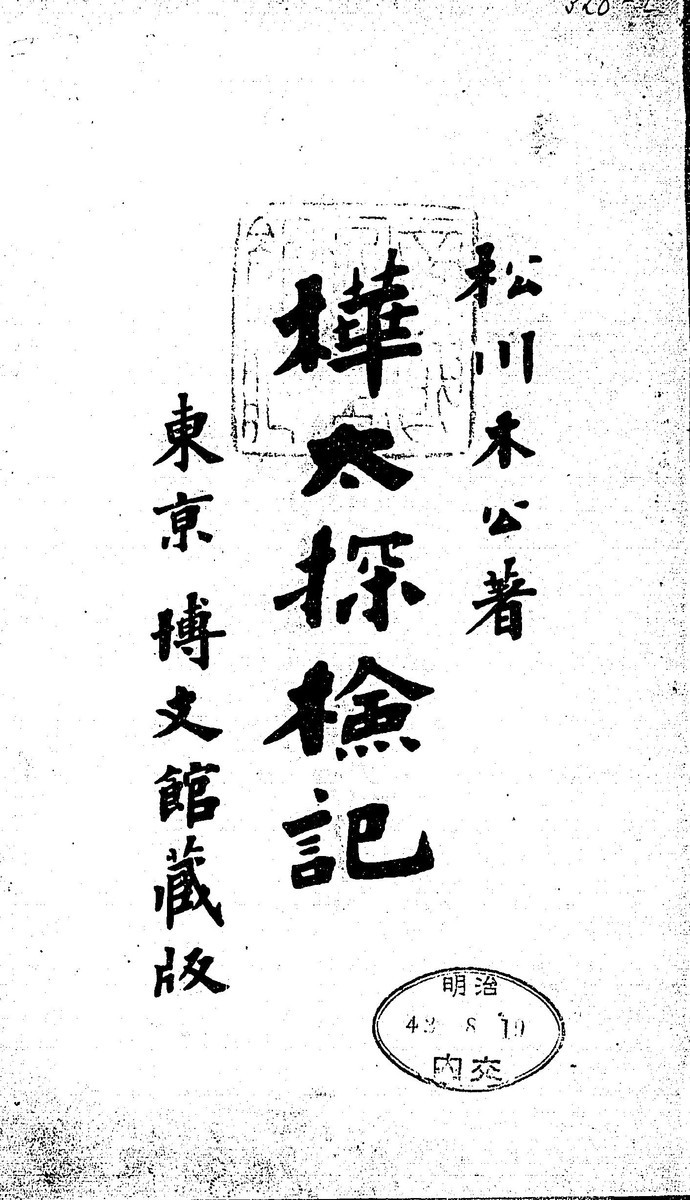 松川木公著
樺太探檢記
東京 博文館藏版
明治
43 8 19
内交